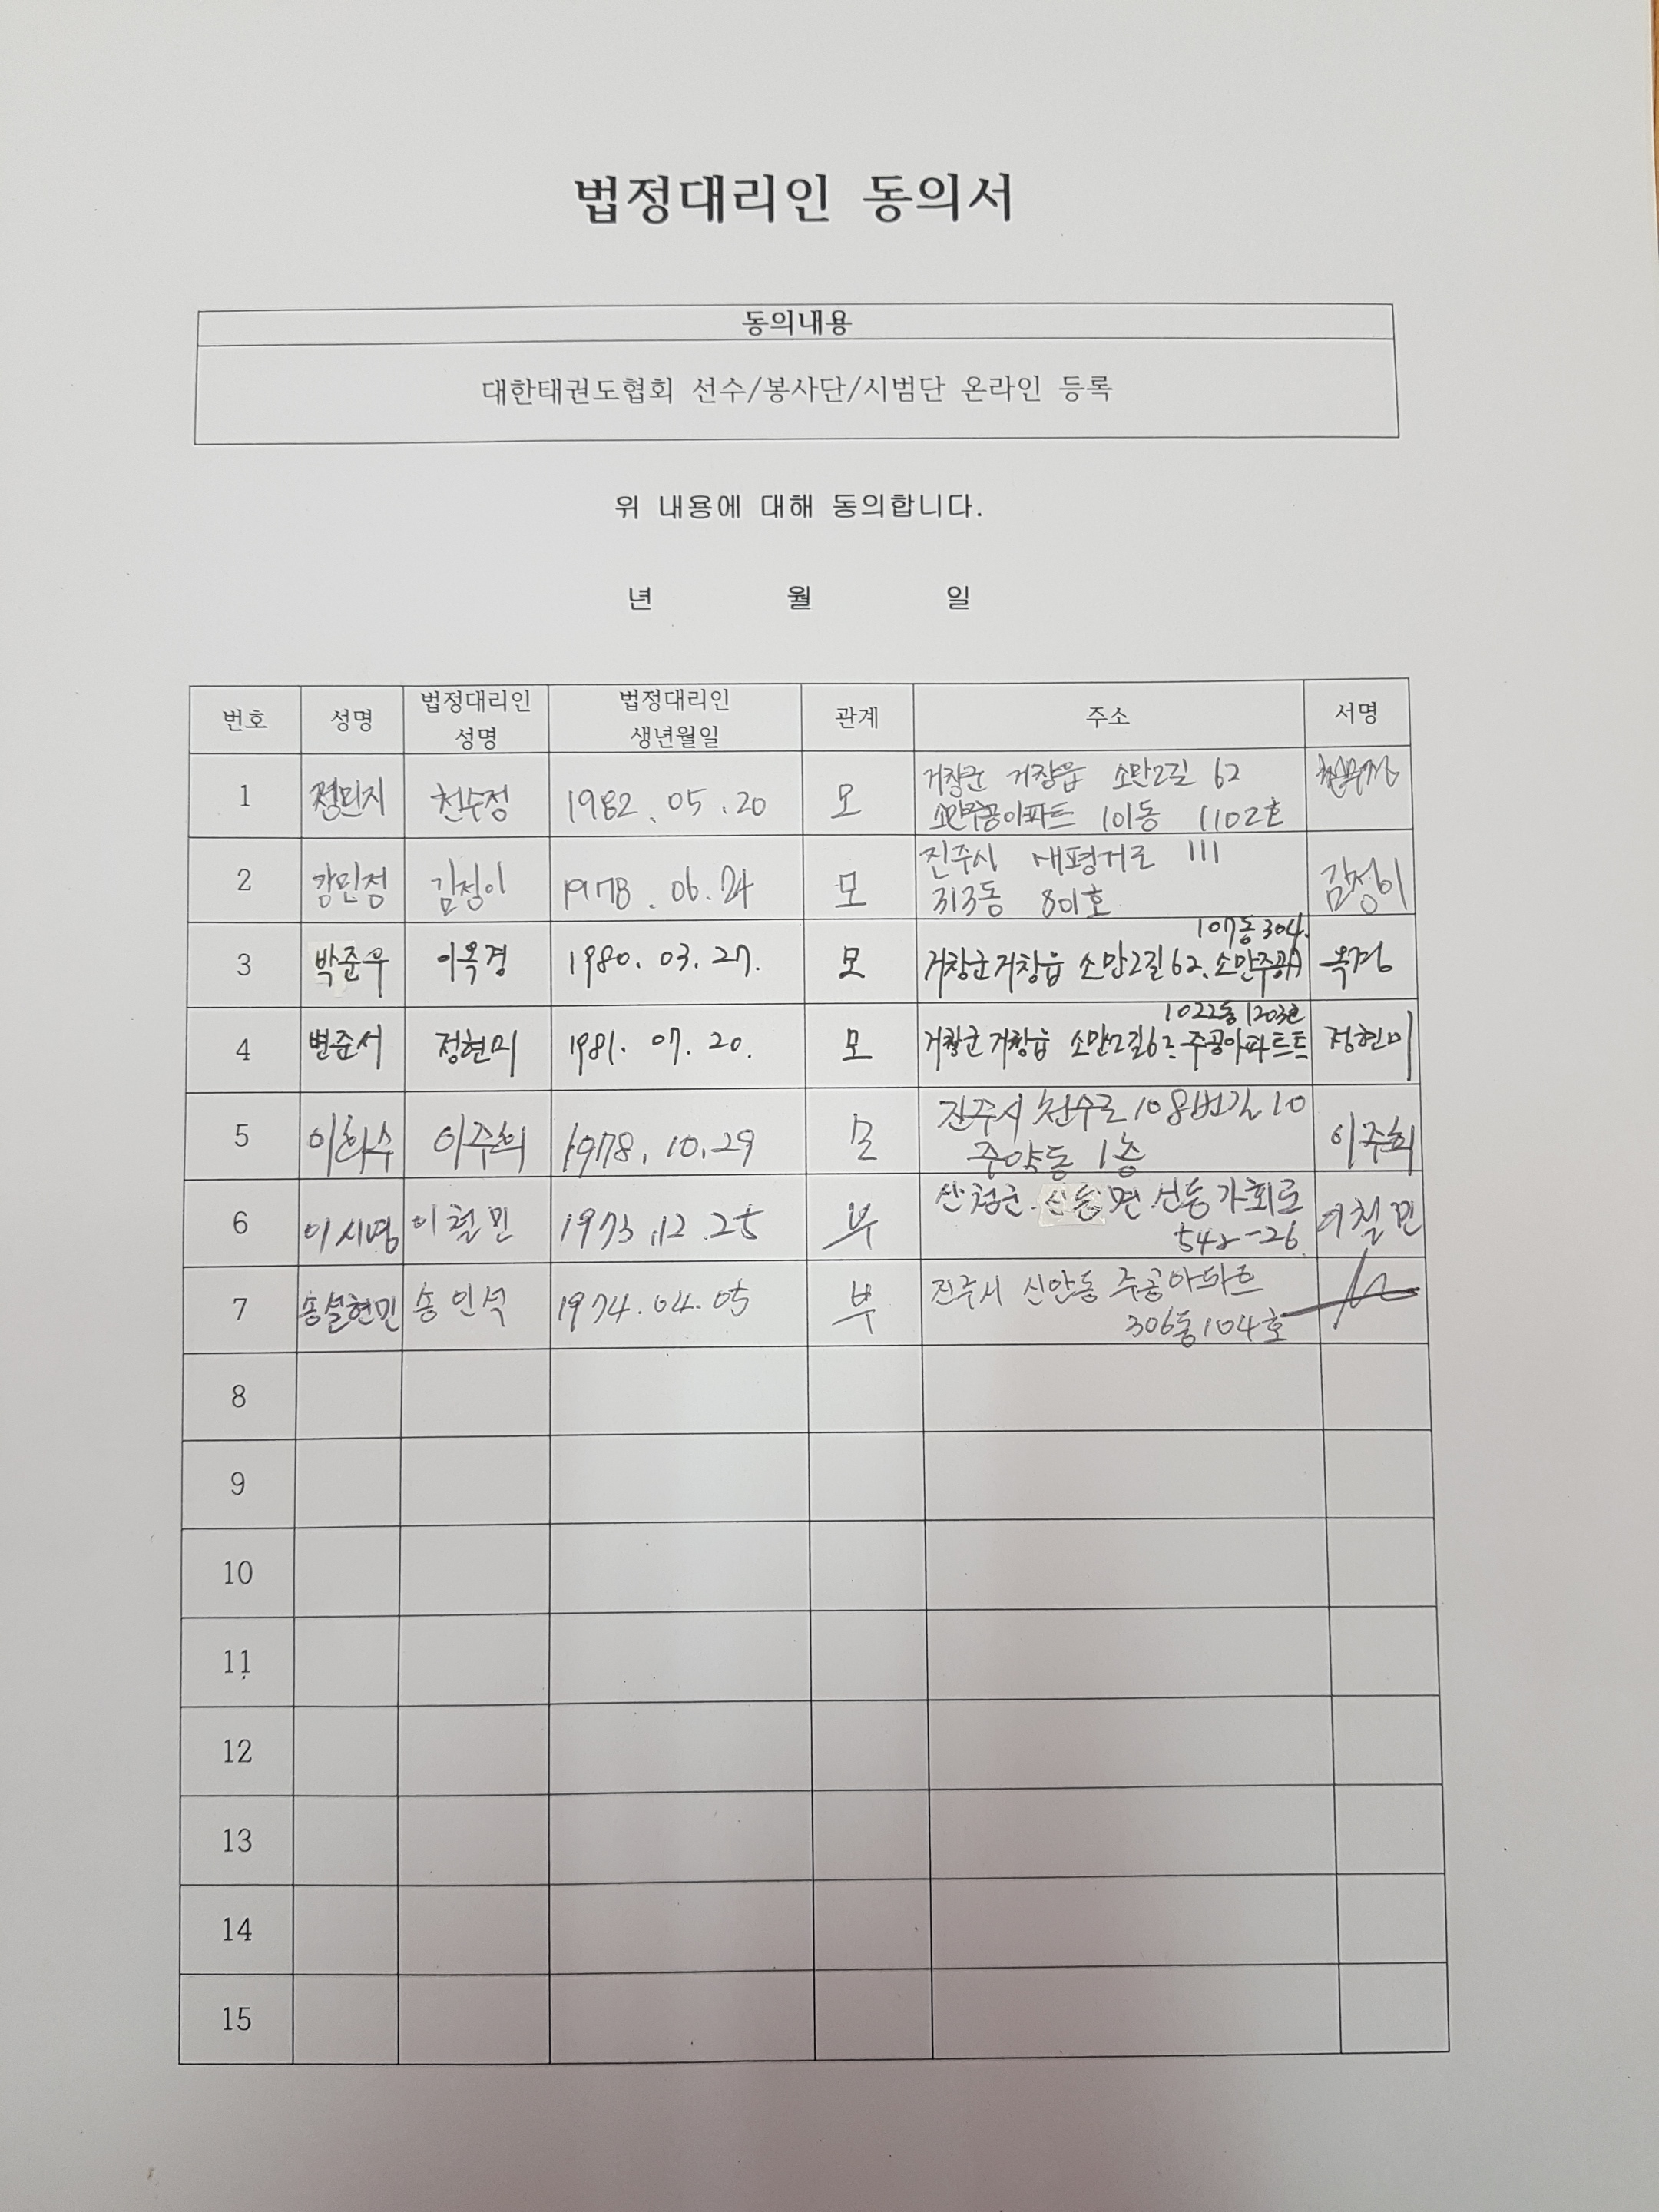 법정대리인 동의서
동의내용
대한태권도협회 선수/봉사단/시범단 온라인 등록
위 내용에 대해 동의합니다.
년 월 일
번호 성명 법정대리인 성명 법정대리인 생년월일 관계 주소 서명
1 정민지 천수정 1982.05.20 모 거창군 거창읍 소만2길 62
소만주공아파트 101동 1102호
2 강민정 김정이 1978.06.24 모 진주시 새평거로 111 김정이
313동 801호
107동 304.
3 박준우 이옥경 1980.03.27. 모 거창군거창읍 소만2길62. 소만주공 옥경
1022동 1203호
4 변준서 정현미 1981.07.20. 모 거창군 거창읍 소만2길62. 주공아파트트 정현미
5 이희수 이주희 1978.10.29 모 진주시 천수로108번길 10 이주희
주약동 1층
6 이시명 이철민 1973.12.25 부 산청군 신등면 신등가회로 이철민
542-26
7 송설현민 송인석 1974.04.05 부 진주시 신안동 주공아파트
306동104호
8
9
10
11
12
13
14
15